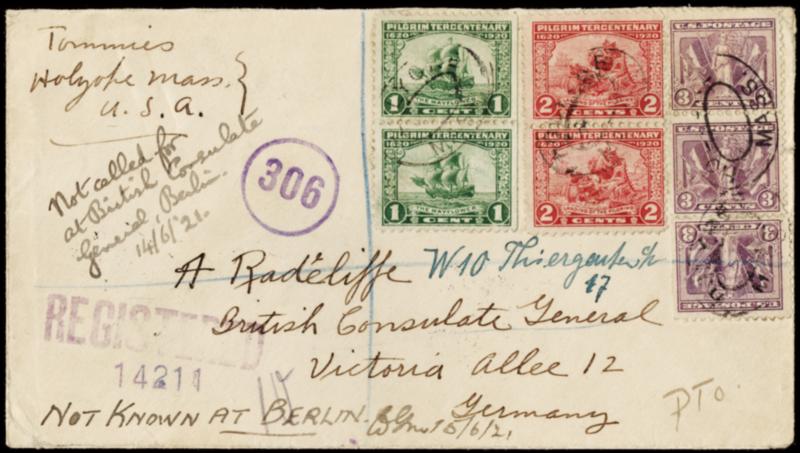 Tommies
Holyoke Mass.
U.S.A.
Not called for
at British Consulate
General, Berlin.
14/6/21.
306
PILGRIM TERCENTENARY
1620 1920
THE MAYFLOWER
1 CENT 1
PILGRIM TERCENTENARY
1620 1920
THE MAYFLOWER
1 CENT 1
PILGRIM TERCENTENARY
1620 1920
2 CENTS 2
PILGRIM TERCENTENARY
1620 1920
LANDING OF THE PILGRIMS
2 CENTS 2
U.S. POSTAGE
3
3 3
3 3
U.S. POSTAGE
MASS
A Radcliffe W10
17
British Consulate General
Victoria Allee 12
Germany
REGISTERED
14211
NOT KNOWN AT BERLIN.
15/6/21
PTO.